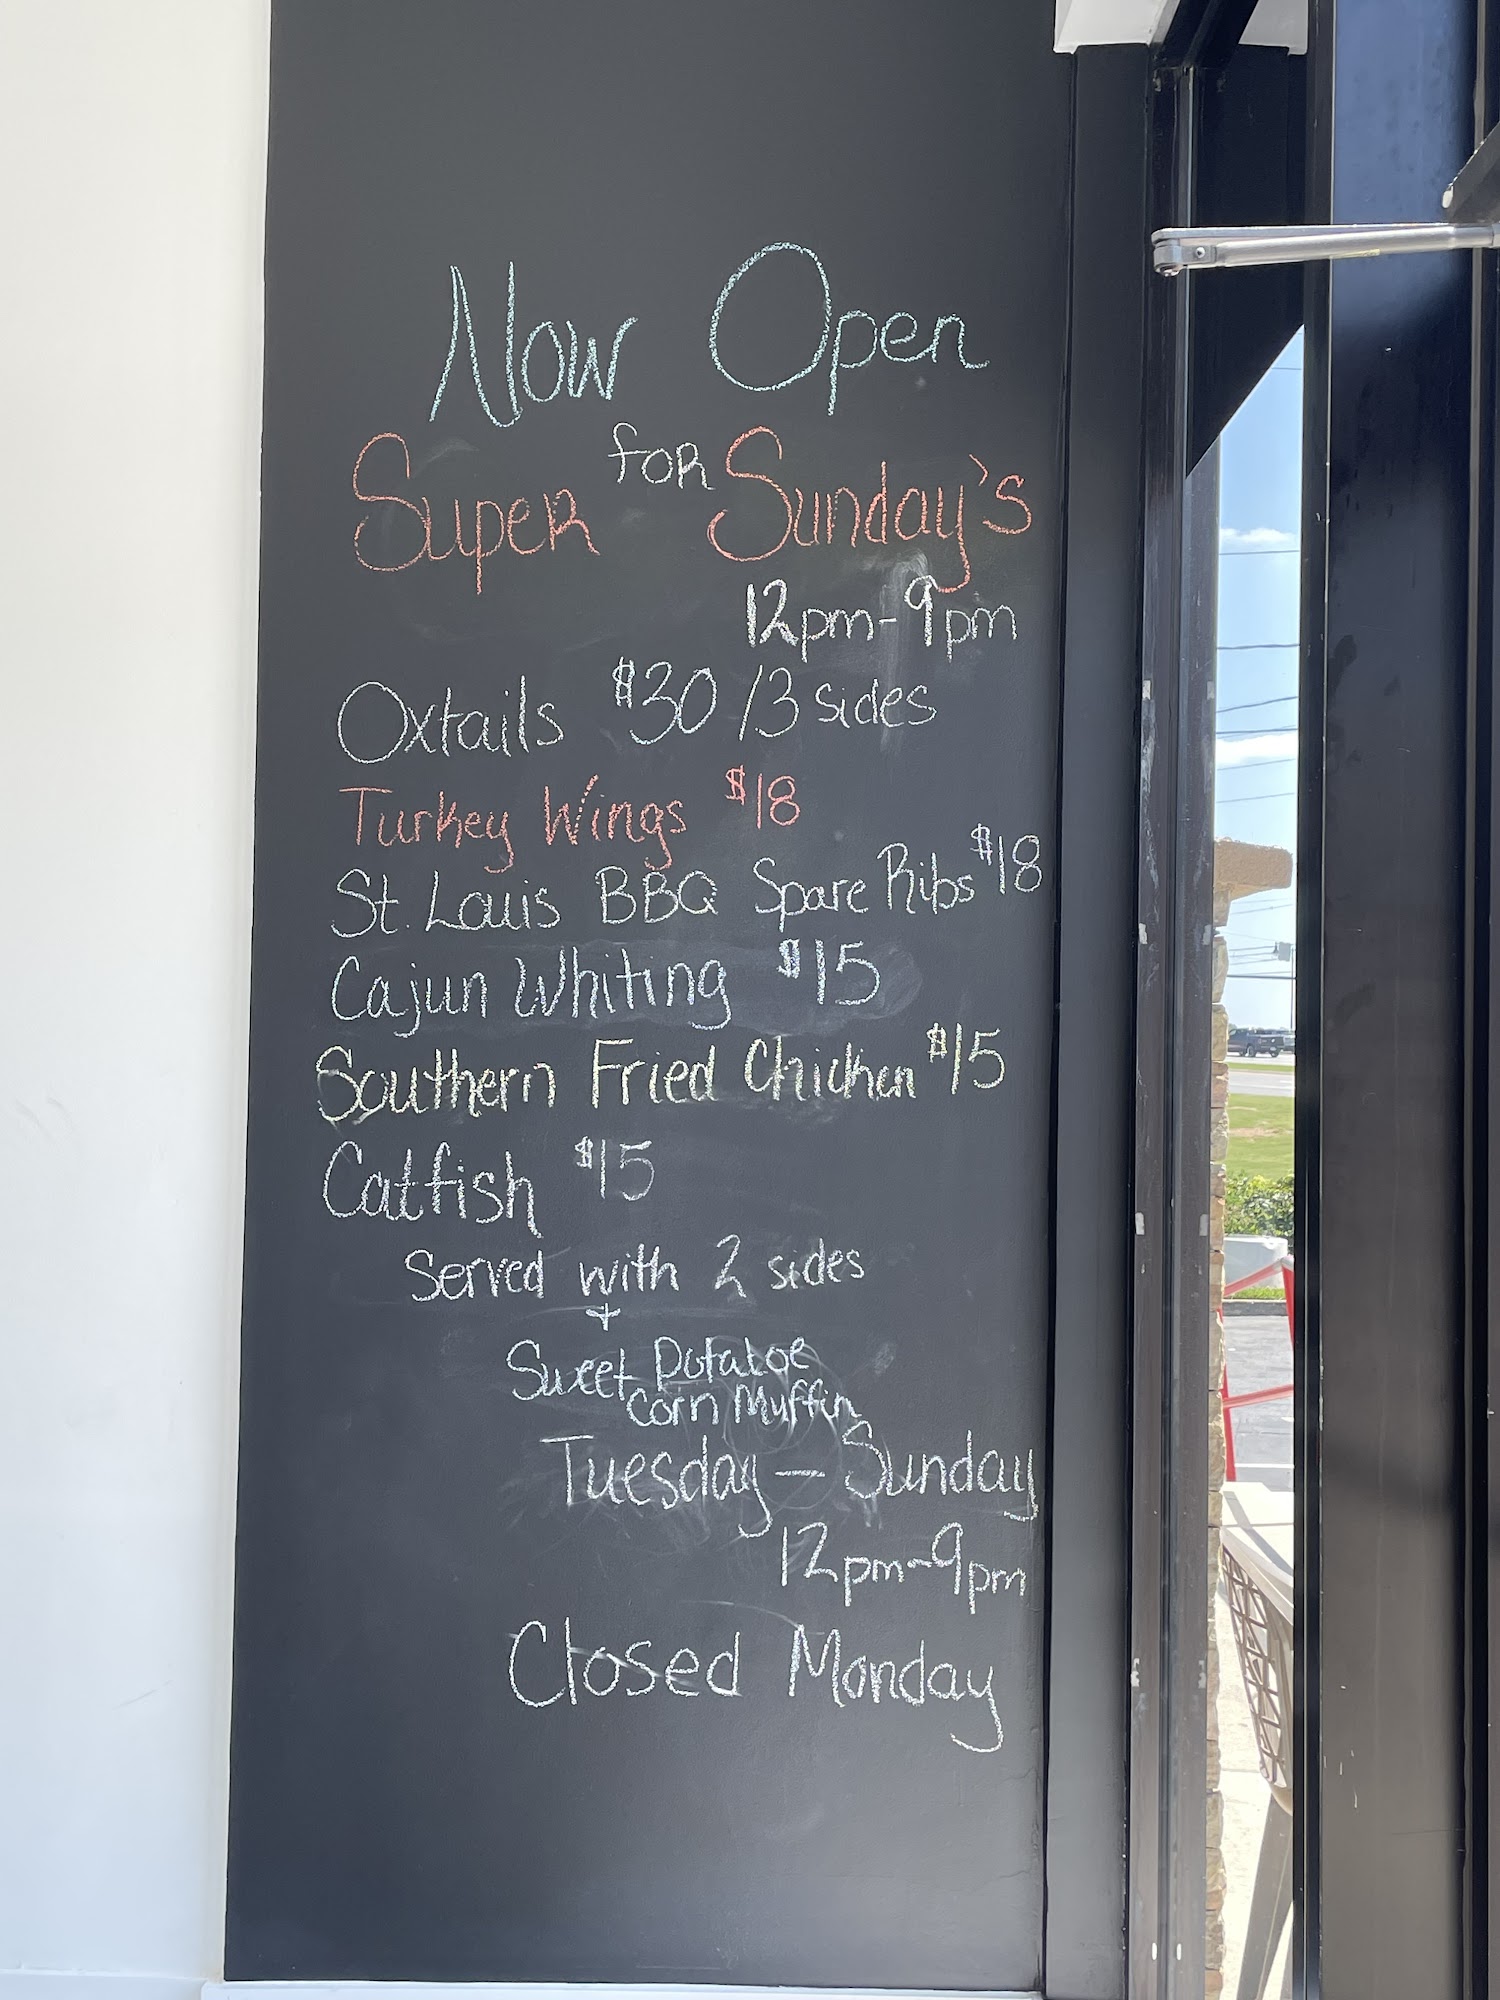 Now Open
for
Super Sunday's
12pm-9pm
Oxtails $30/3 sides
Turkey Wings $18
St. Louis BBQ Spare Ribs $18
Cajun Whiting $15
Southern Fried Chicken $15
Catfish $15
Served with 2 sides
+
Sweet Potatoe
Corn Muffin
Tuesday - Sunday
12pm-9pm
Closed Monday